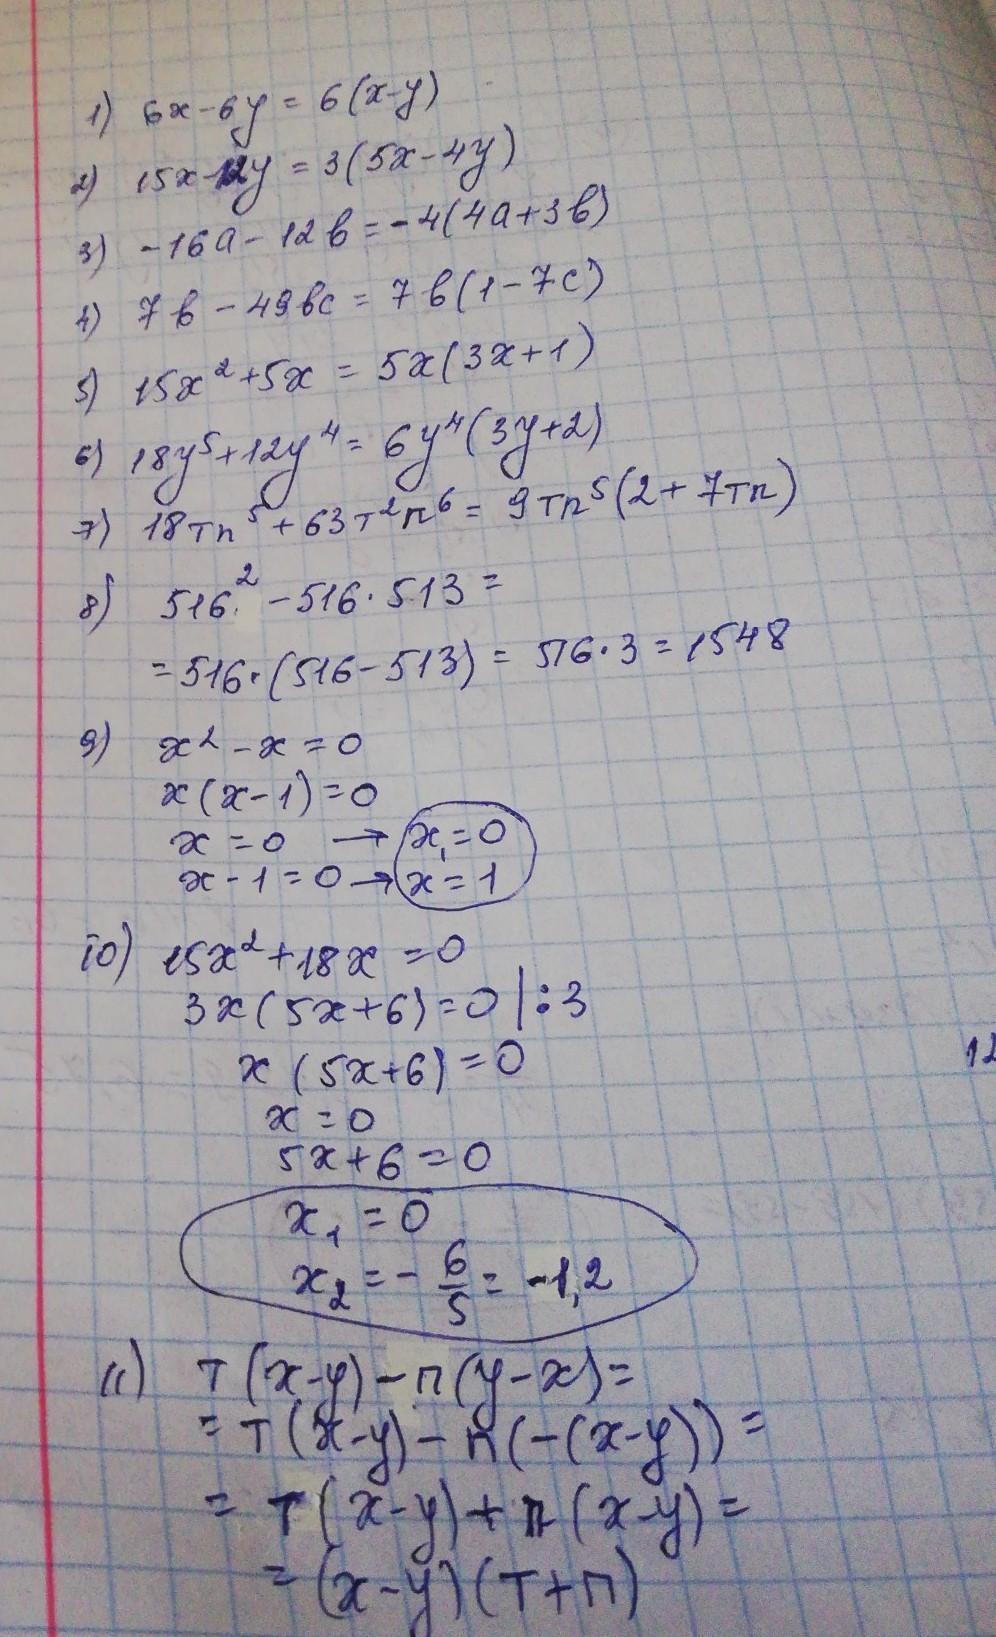 1) 6x-6y = 6(x-y)
2) 15x-12y = 3(5x-4y)
3) -16a-12b = -4(4a+3b)
4) 7b-49bc = 7b(1-7c)
5) 15x²+5x = 5x(3x+1)
6) 18y⁵+12y⁴ = 6y⁴(3y+2)
7) 18тп⁵+63т²п⁶ = 9тп⁵(2+7тп)
8) 516²-516·513=
=516·(516-513)=516·3=1548
9) x²-x=0
x(x-1)=0
x=0 → x₁=0
x-1=0 → x=1
10) 15x²+18x=0
3x(5x+6)=0 |:3
x(5x+6)=0
12
x=0
5x+6=0
x₁=0
x₂=-6/5=-1,2
11) т(x-y)-п(y-x)=
=т(x-y)-п(-(x-y))=
=т(x-y)+п(x-y)=
=(x-y)(т+п)